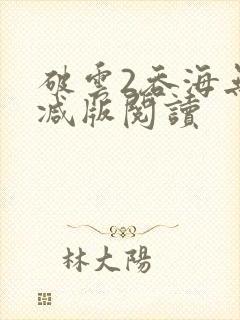 破雲2吞海無
减版閱讀
林大陽